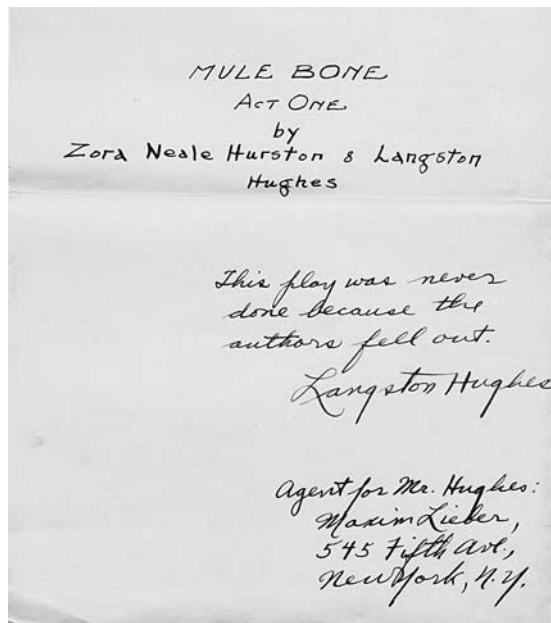 MULE BONE
ACT ONE
by
Zora Neale Hurston & Langston
Hughes
This play was never
done because the
authors fell out.
Langston Hughes
Agent for Mr. Hughes:
Maxim Lieber,
545 Fifth Ave.,
New York, N.Y.